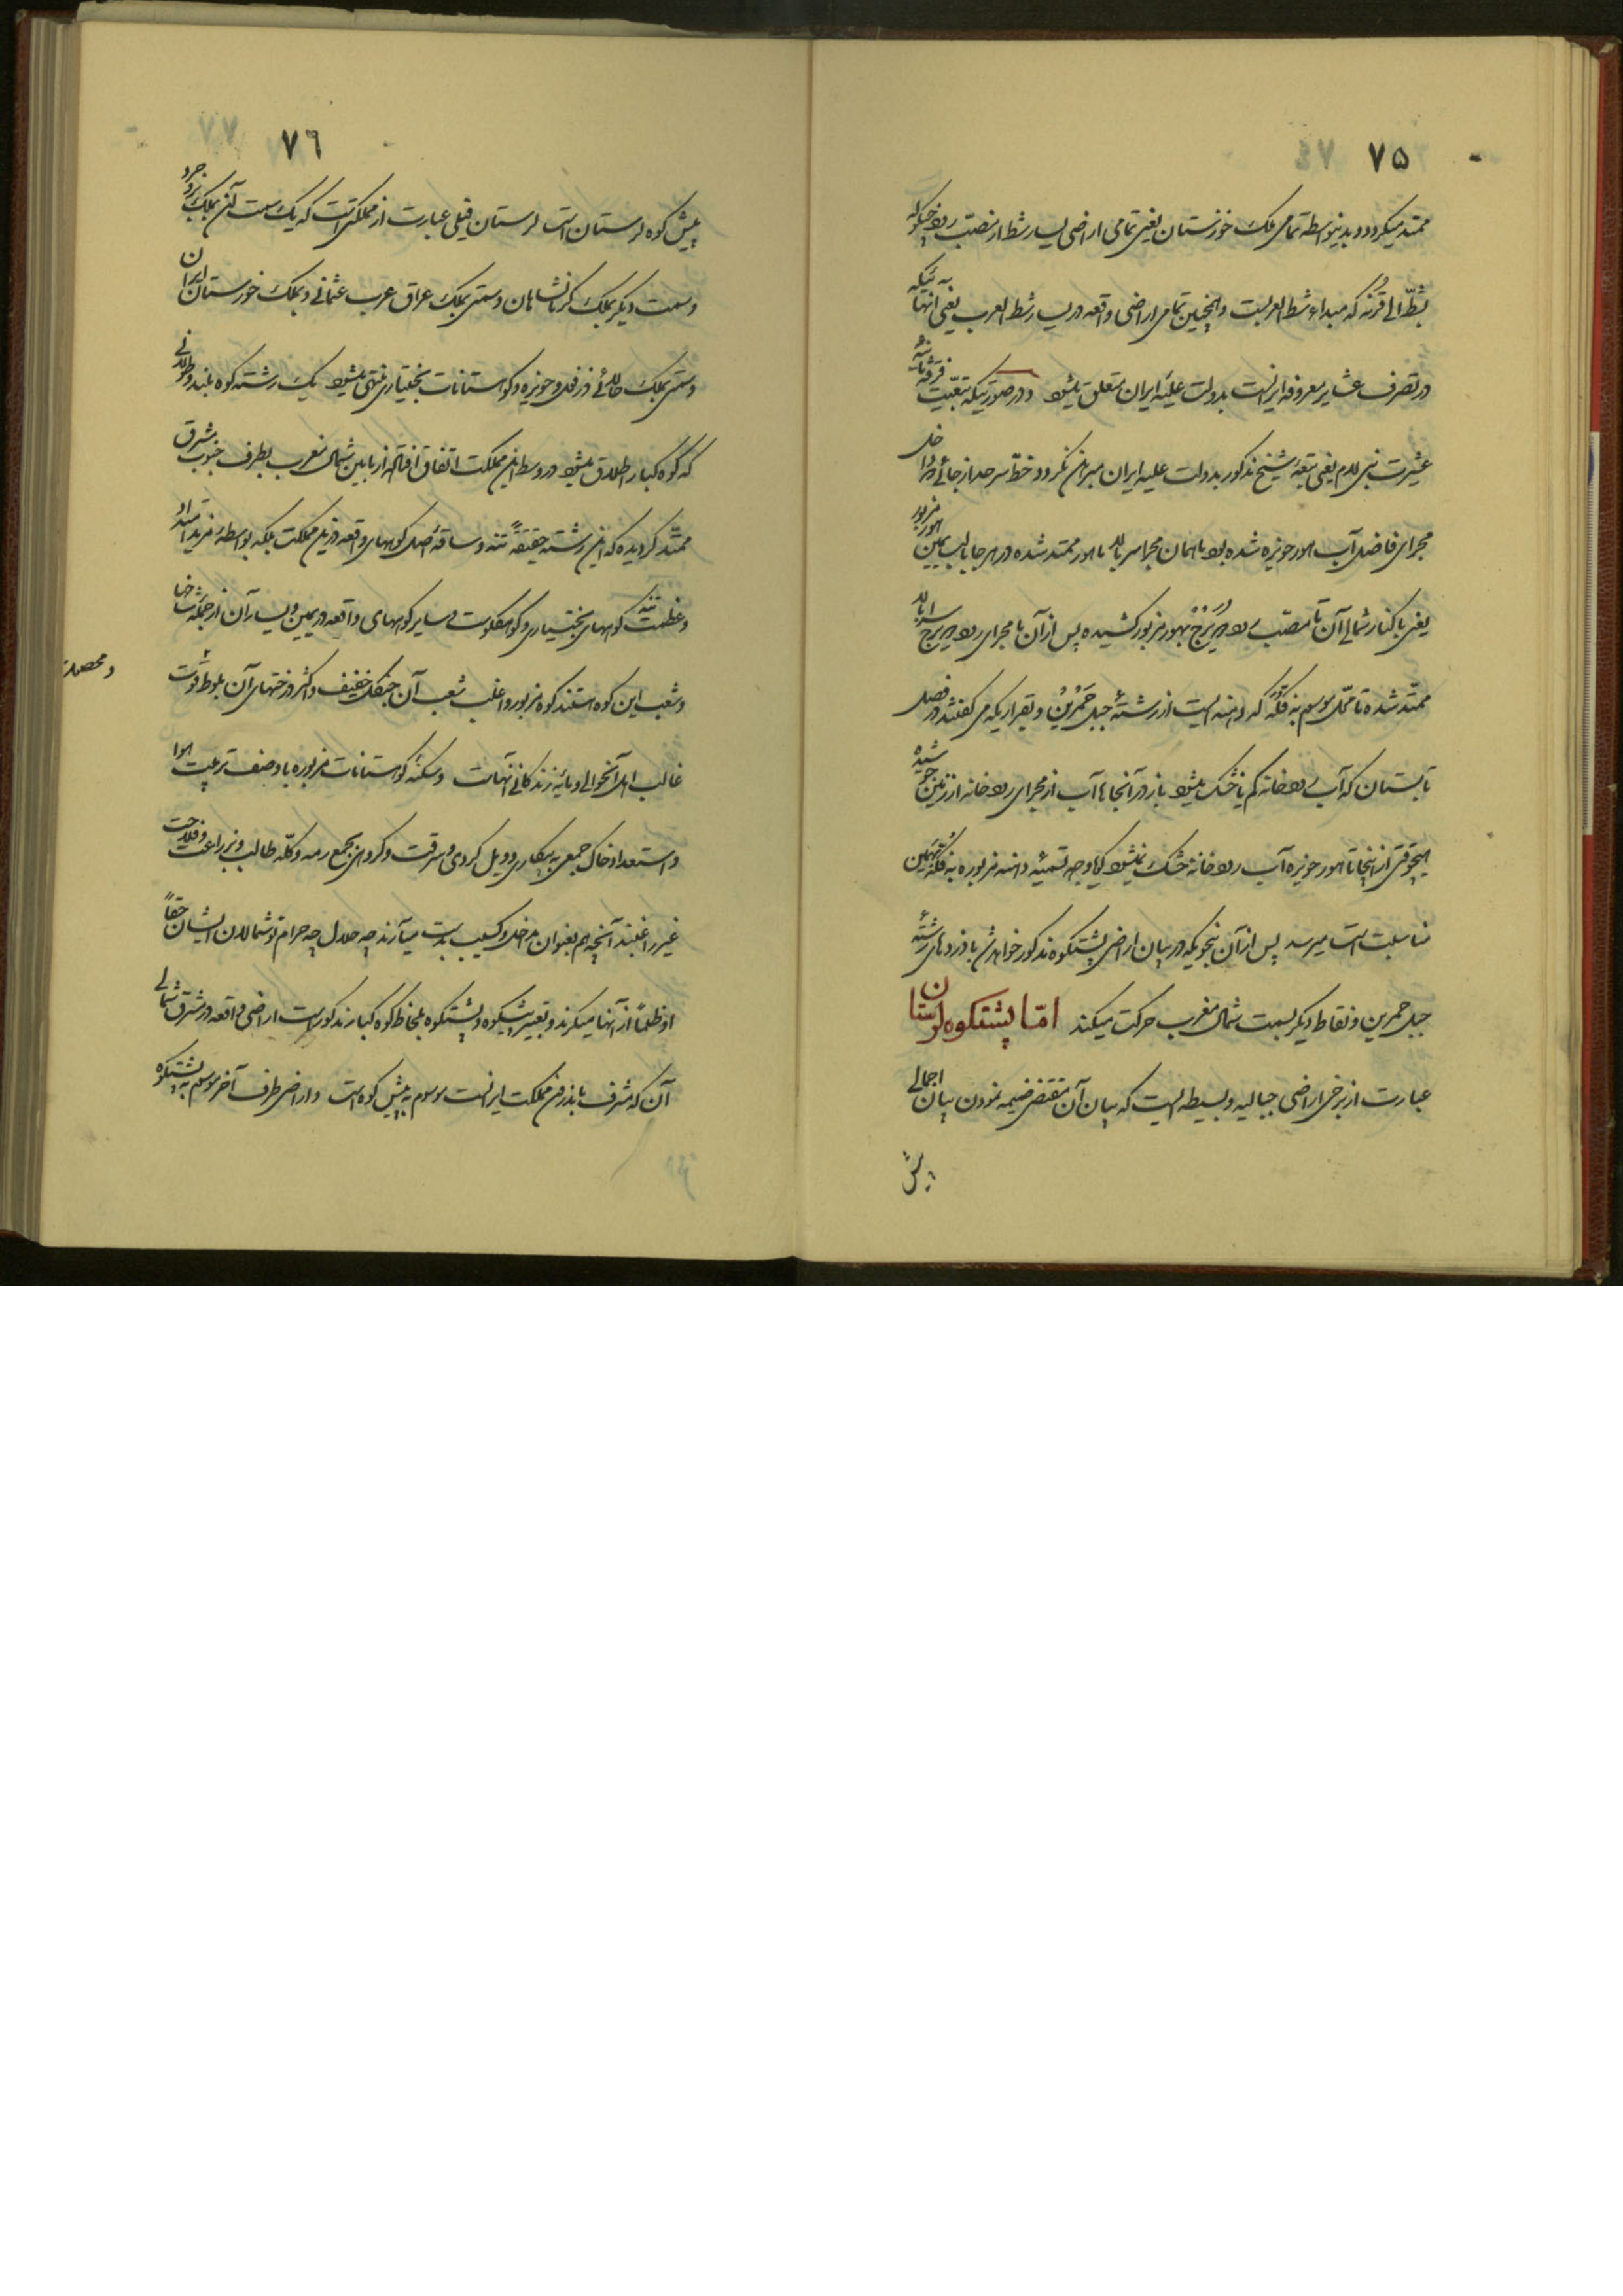 ۷۵
ممتد میگردد و بدینواسطه تمامی ملک خوزستان یعنی تمامی اراضی یسار شط از مصب رود
بشط الی قرنه که مبداء شط العربست و همچنین تمامی اراضی واقعه در یسار شط العرب یعنی آنهائیکه
در تصرف عشایر معروفه ایرانست بدولت علیّه ایران متعلق میشود و در صورتیکه تبعیت فرقه ثانیه
عشیرت بنی لام یعنی تبعه شیخ مذکور بدولت علیه ایران مبرهن نگردد خط سرحد از جائے که داخل
مجرای فاضل آب هور حویزه شده بود با همان مجرا سر بالا با هور ممتد شده در هر جا با لب یمین هور مزبور
یعنی با کنار شمالی آن تا مصب رود دویرج بهور مزبور کشیده پس از آن با مجرای رود دویرج سر بالا
ممتد شده تا محل موسوم به فکه که دهنه ایست از رشتهٔ جبل حمرین و بقراریکه می گفتند در فصل
تابستان که آب رودخانه کم یا خشک میشود باز در آنجاها آب از مجرای رودخانه از زمین جوشیده
هیچوقتی از اینجا تا هور حویزه آب رودخانه خشک نمیشود گویا وجه تسمیهٔ دهنه مزبوره به فکه بهمین
مناسبت است میرسد پس از آن بنحویکه در بیان اراضی پشتکوه مذکور خواهد شد با ذروه های رشتهٔ
جبل حمرین و نقاط دیگر بسمت شمال مغرب حرکت میکند امّا پشتکوه لرستان
عبارت از برخی اراضی جبالیه و بسیطه ایست که بیان آن مقتضی ضمیمه نمودن بیان اجمالی
پیش
۷۶
پیش کوه لرستان است لرستان فیلی عبارت از مملکتی است که یک سمت آن بملک بروجرد
و سمت دیگر بملک کرمانشاهان و سمتی بملک عراق عرب عثمانی و بملک خوزستان ایران
و سمتی بملک دزفول و حویزه و کوهستانات بختیاری منتهی میشود یک رشته کوه بلند و طولانی
که کوه کبار اطلاق میشود در وسط این مملکت اتفاق افتاده از مابین شمال مغرب بطرف جنوب مشرق
ممتد گردیده که این رشته حقیقةً تنه و ساقهٔ اصل کوههای واقعه در این مملکت بلکه بواسطهٔ مزید امتداد
و عظمت تنه کوههای بختیاری و کوه کیلویه و سایر کوههای واقعه در یمین و یسار آن از جمله شاخها
و شعب این کوه هستند کوه مزبور و اغلب شعب آن جنگل خفیف و اکثر درختهای آن بلوط و قوت
و محصول
غالب اهل آنحوالی و مایهٔ زندگانی آنهاست و سکنهٔ کوهستانات مزبوره با وصف تربیت هوا
و استعداد خاک جمعی به بیکاری و سرقت و گروهی بجمع رمه و گله طالب و بزراعت و فلاحت
غیر راغبند آنچه هم بعنوان مداخل و کسب بدست میآرند چه حلال چه حرام توشمالان ایشان حقاً
او ظلماً از آنها میگیرند و تعبیر پیشکوه و پشتکوه بلحاظ کوه کبار مذکور است اراضی واقعه در مشرق شمالی
آن که مشرف باندرون مملکت ایرانست موسوم به پیش کوه است و اراضی طرف آخر موسوم به پشتکوه